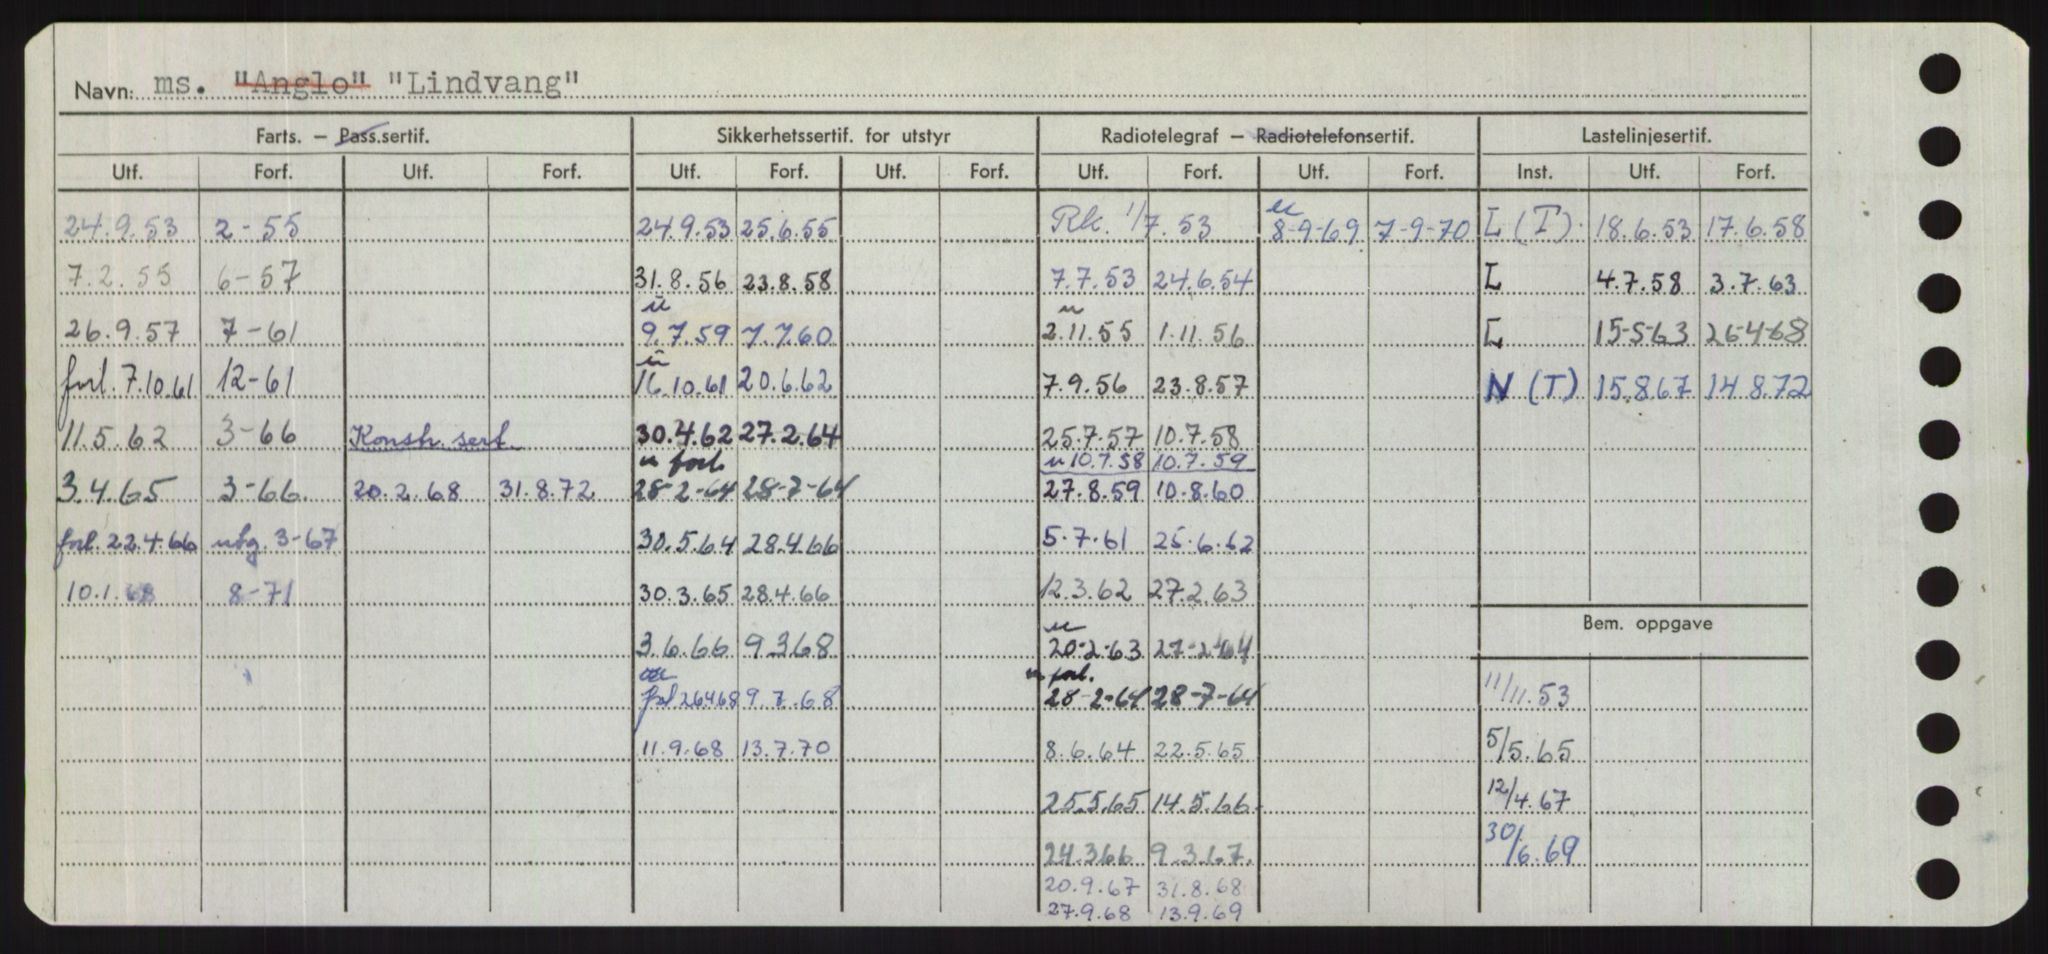 Navn: ms. "Anglo" "Lindvang"
Farts. — Pass.sertif. Sikkerhetssertif. for utstyr Radiotelegraf — Radiotelefonsertif. Lastelinjesertif.
Utf. Forf. Utf. Forf. Utf. Forf. Utf. Forf. Utf. Forf. Utf. Forf. Inst. Utf. Forf.
24.9.53 2-55 24.9.53 25.6.55 Rk. 1/7.53 u 8-9-69 7-9-70 L (T). 18.6.53 17.6.58
7.2.55 6-57 31.8.56 23.8.58 7.7.53 24.6.54 L 4.7.58 3.7.63
26.9.57 7-61 u 9.7.59 7.7.60 u 2.11.55 1.11.56 L 15-5-63 26-4-68
forl. 7.10.61 12-61 u 16.10.61 20.6.62 7.9.56 23.8.57 N (T) 15.8.67 14.8.72
11.5.62 3-66 Konstr. sert. 30.4.62 27.2.64 25.7.57 10.7.58
u 10.7.58 10.7.59
3.4.65 3-66. 20.2.68 31.8.72 u forl. 28-2-64 28-7-64 27.8.59 10.8.60
forl. 22.4.66 utg. 3-67 30.5.64 28.4.66 5.7.61 25.6.62
10.1.68 8-71 30.3.65 28.4.66 12.3.62 27.2.63
Bem. oppgave
3.6.66 9.3.68 u 20-2-63 27-2-64
forl 26.4.68 9.7.68 u forl. 28-2-64 28-7-64 11/11.53
11.9.68 13.7.70 8.6.64 22.5.65 5/5.65
25.5.65 14.5.66. 12/4.67
24.3.66 9.3.67. 30/6.69
20.9.67 31.8.68
27.9.68 13.9.69